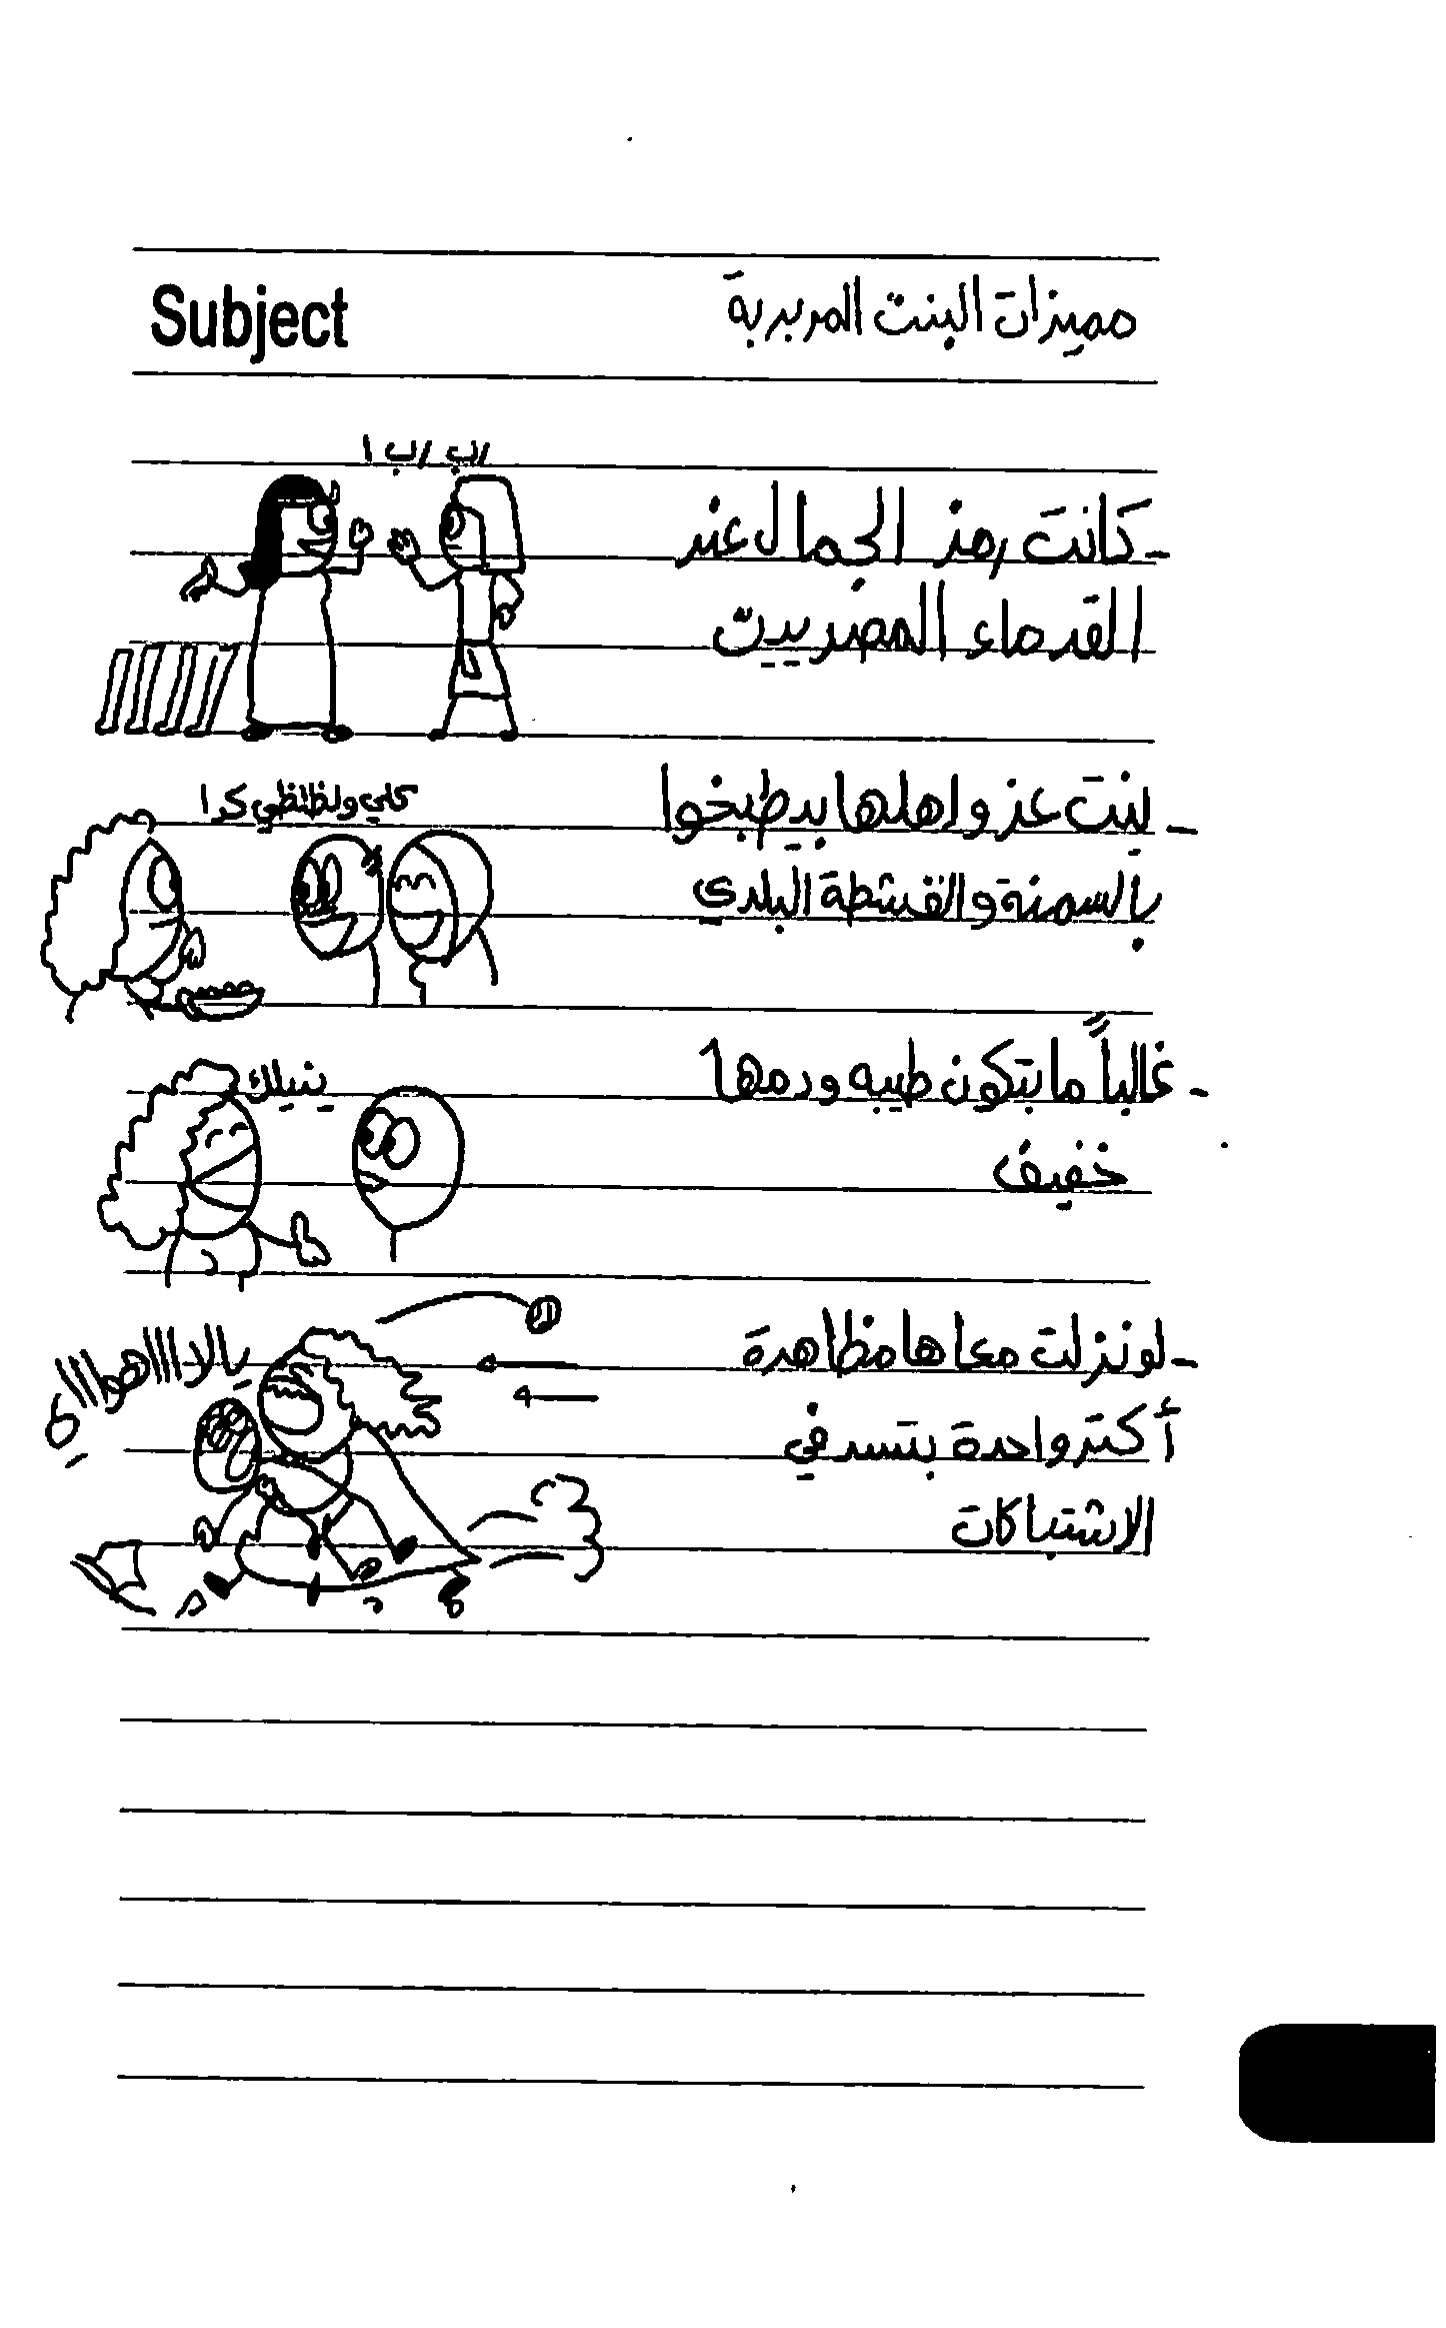 Subject
مميزات البنت المربربة
كانت رمز الجمال عند
القدماء المصريين
- بنت عز واهلها بيطبخوا
بالسمنة والقشطة البلدي
كلي ولظلظي كدا
- غالباً ما بتكون طيبه ودمها
خفيف
- لو نزلت معاها مظاهرة
أكتر واحدة بتسد في
الاشتباكات